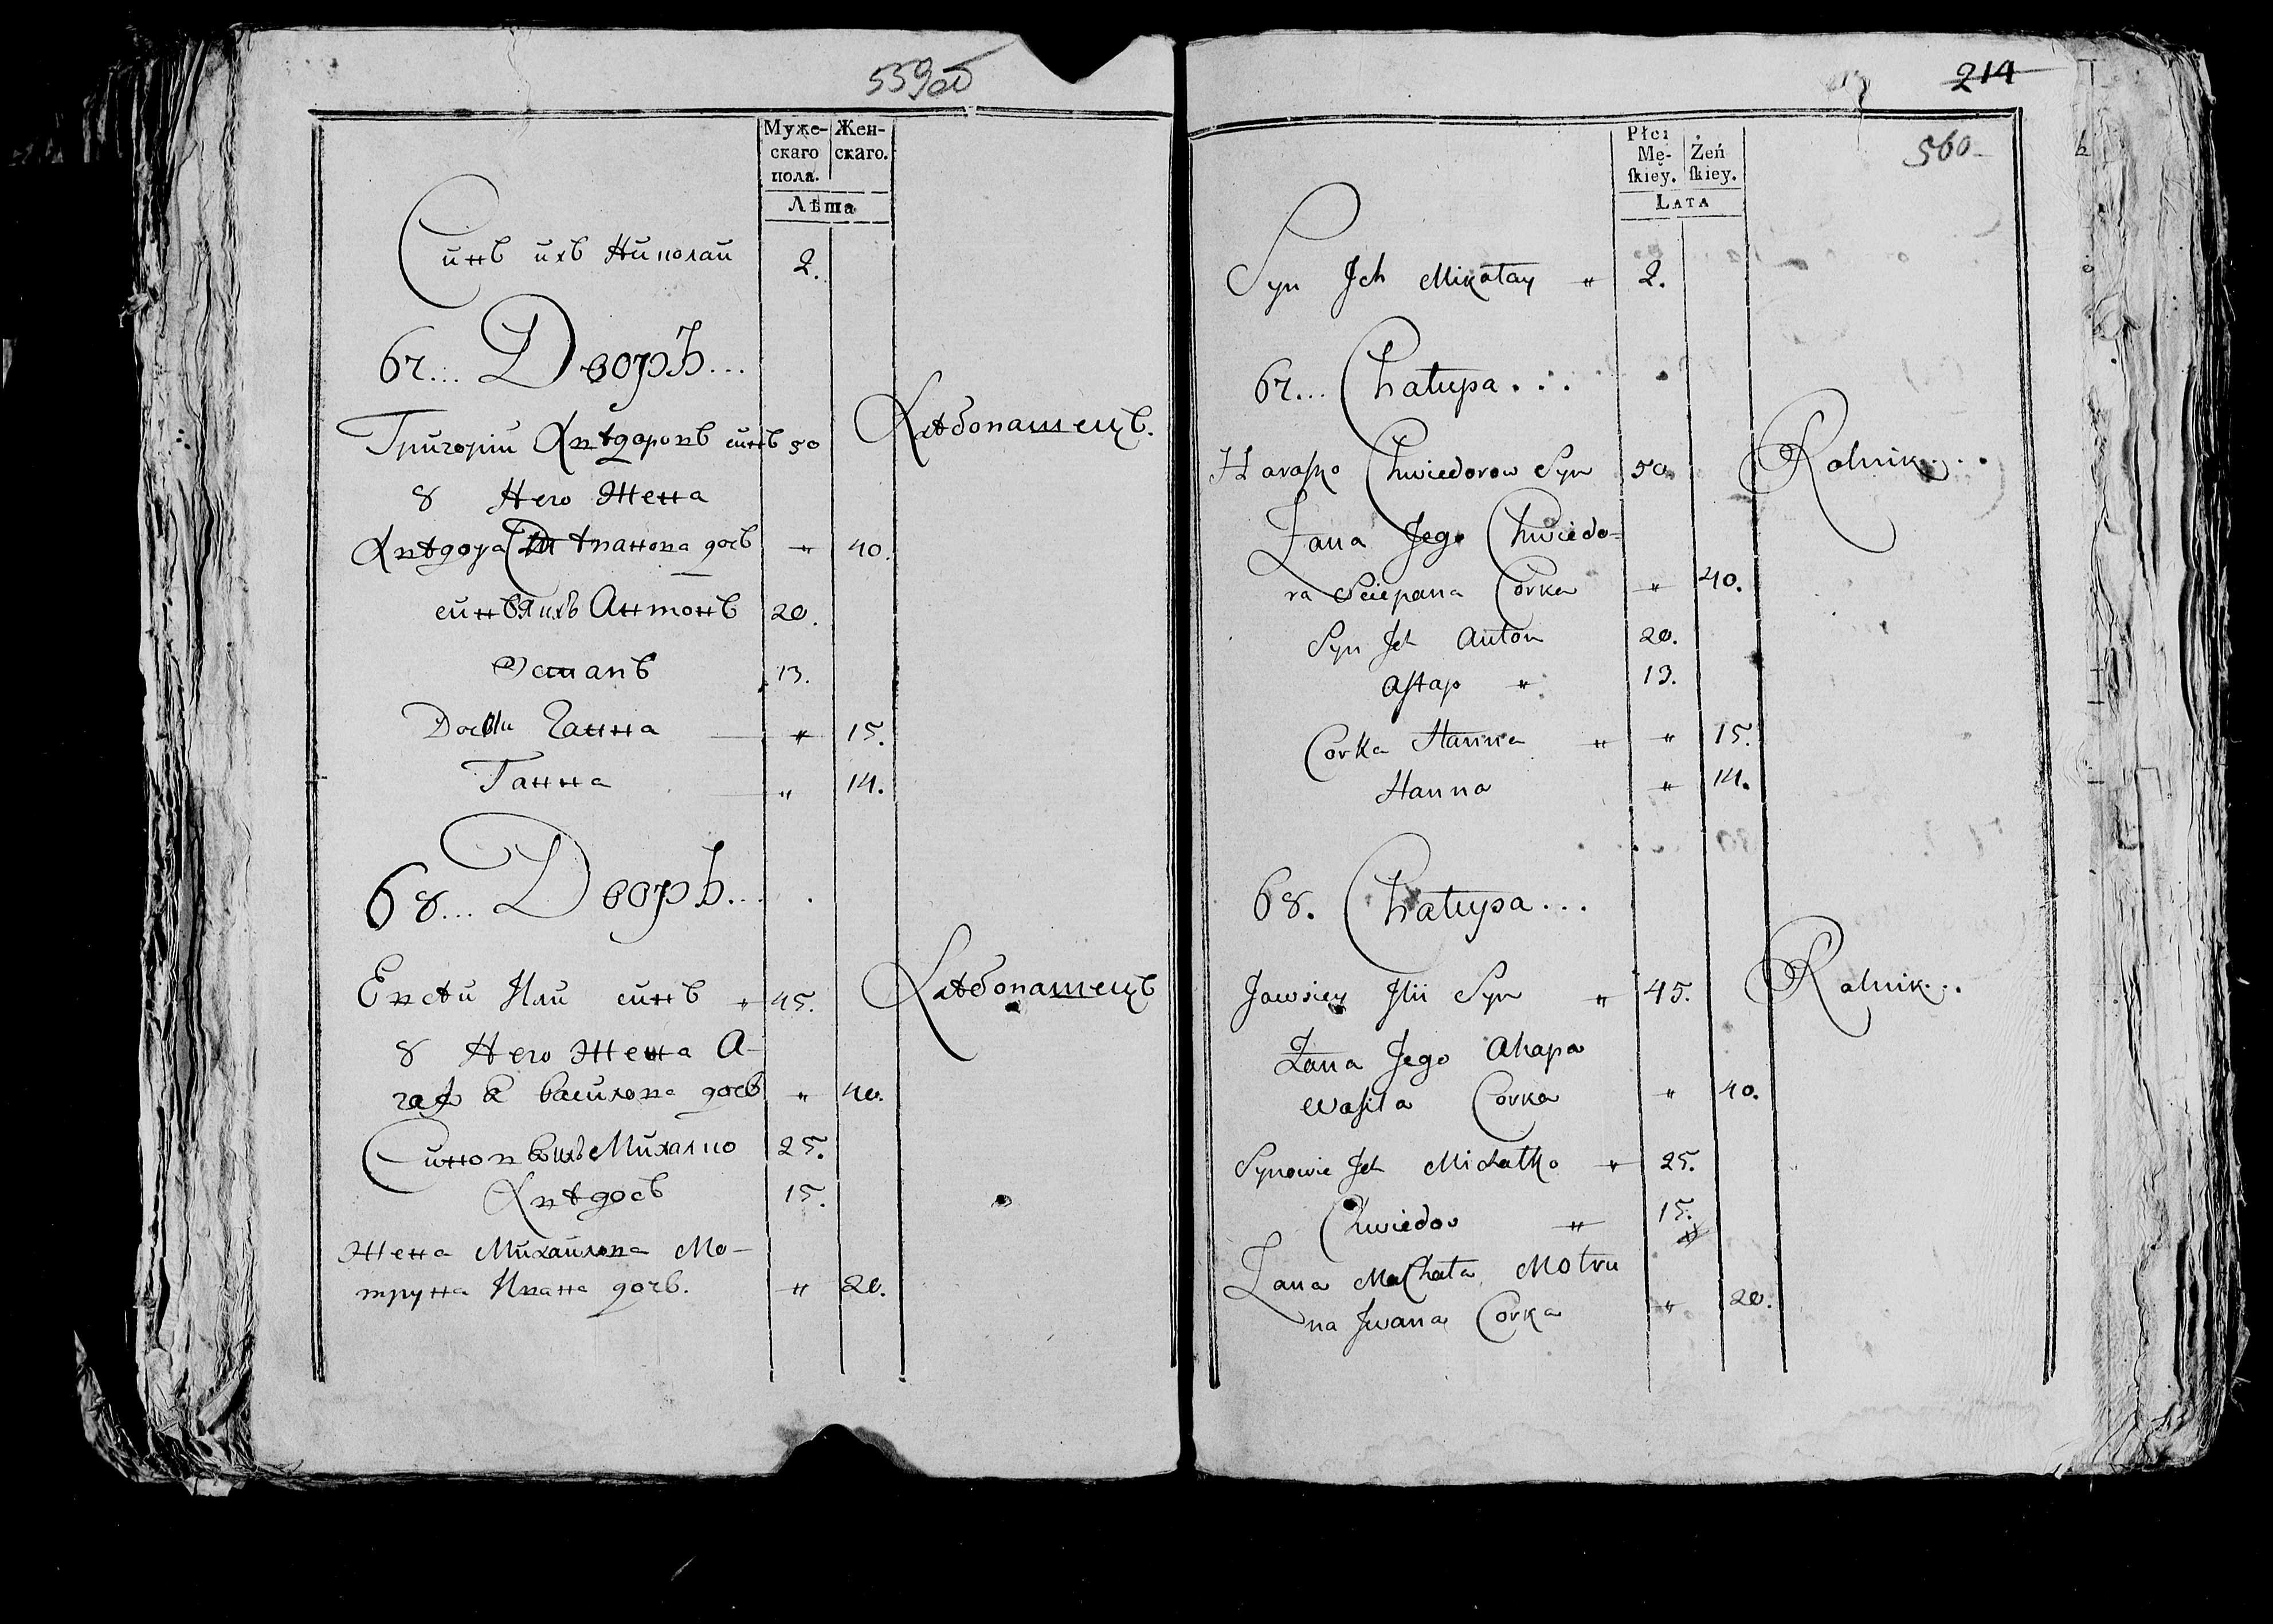 559об
Муже-
скаго
пола.
Жен-
скаго.
Лѣта
Синъ ихъ Николай 2.
67... Дворъ...
Григорій Хвѣдоровъ синъ 50 Хлѣбопашецъ.
8 Него Жена
Хвѣдора Стѣпанова дочъ " 40.
синъ ихъ Антонъ 20.
Остапъ 13.
Дочки Ганна " 15.
Ганна " 14.
68... Дворъ...
Евсѣй Иліи синъ " 45. Хлѣбопашецъ
8 Него Жена А-
гафия Василова дочъ " 40.
Синовья ихъ Михалко 25.
Хвѣдосъ 15.
Жена Михайлова Мо-
труна Ивана дочъ. " 20.
214
560
Płci
Mę-
ſkiey.
Żeń
ſkiey.
LATA
Syn Jch Mikołay " 2.
67... Chałupa...
Haraſko Chwiedorow Syn 50. Rolnik...
Żana Jego Chwiedo-
ra Sciepana Corka " 40.
Syn Jch Anton 20.
Aſtap " 13.
Corka Hanna " " 15.
Hanna " 14.
68. Chałupa...
Jawsiey Jlii Syn " 45. Rolnik...
Żana Jego Ahapa
Waſila Corka " 40.
Synowie Jch Michałko " 25.
Chwiedos " 15.
Żana Machała Motru
na Jwana Corka " 20.